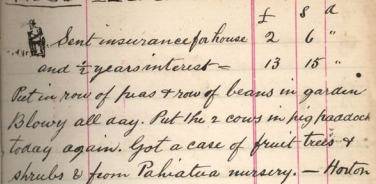 £ s d
Sent insurance for house 2 6 "
and ½ years interest = 13 15 "
Put in row of peas & row of beans in garden
Blowy all day. Put the 2 cows in pig paddock
today again. Got a case of fruit trees &
shrubs & from Pahiatua nursery. — Horton